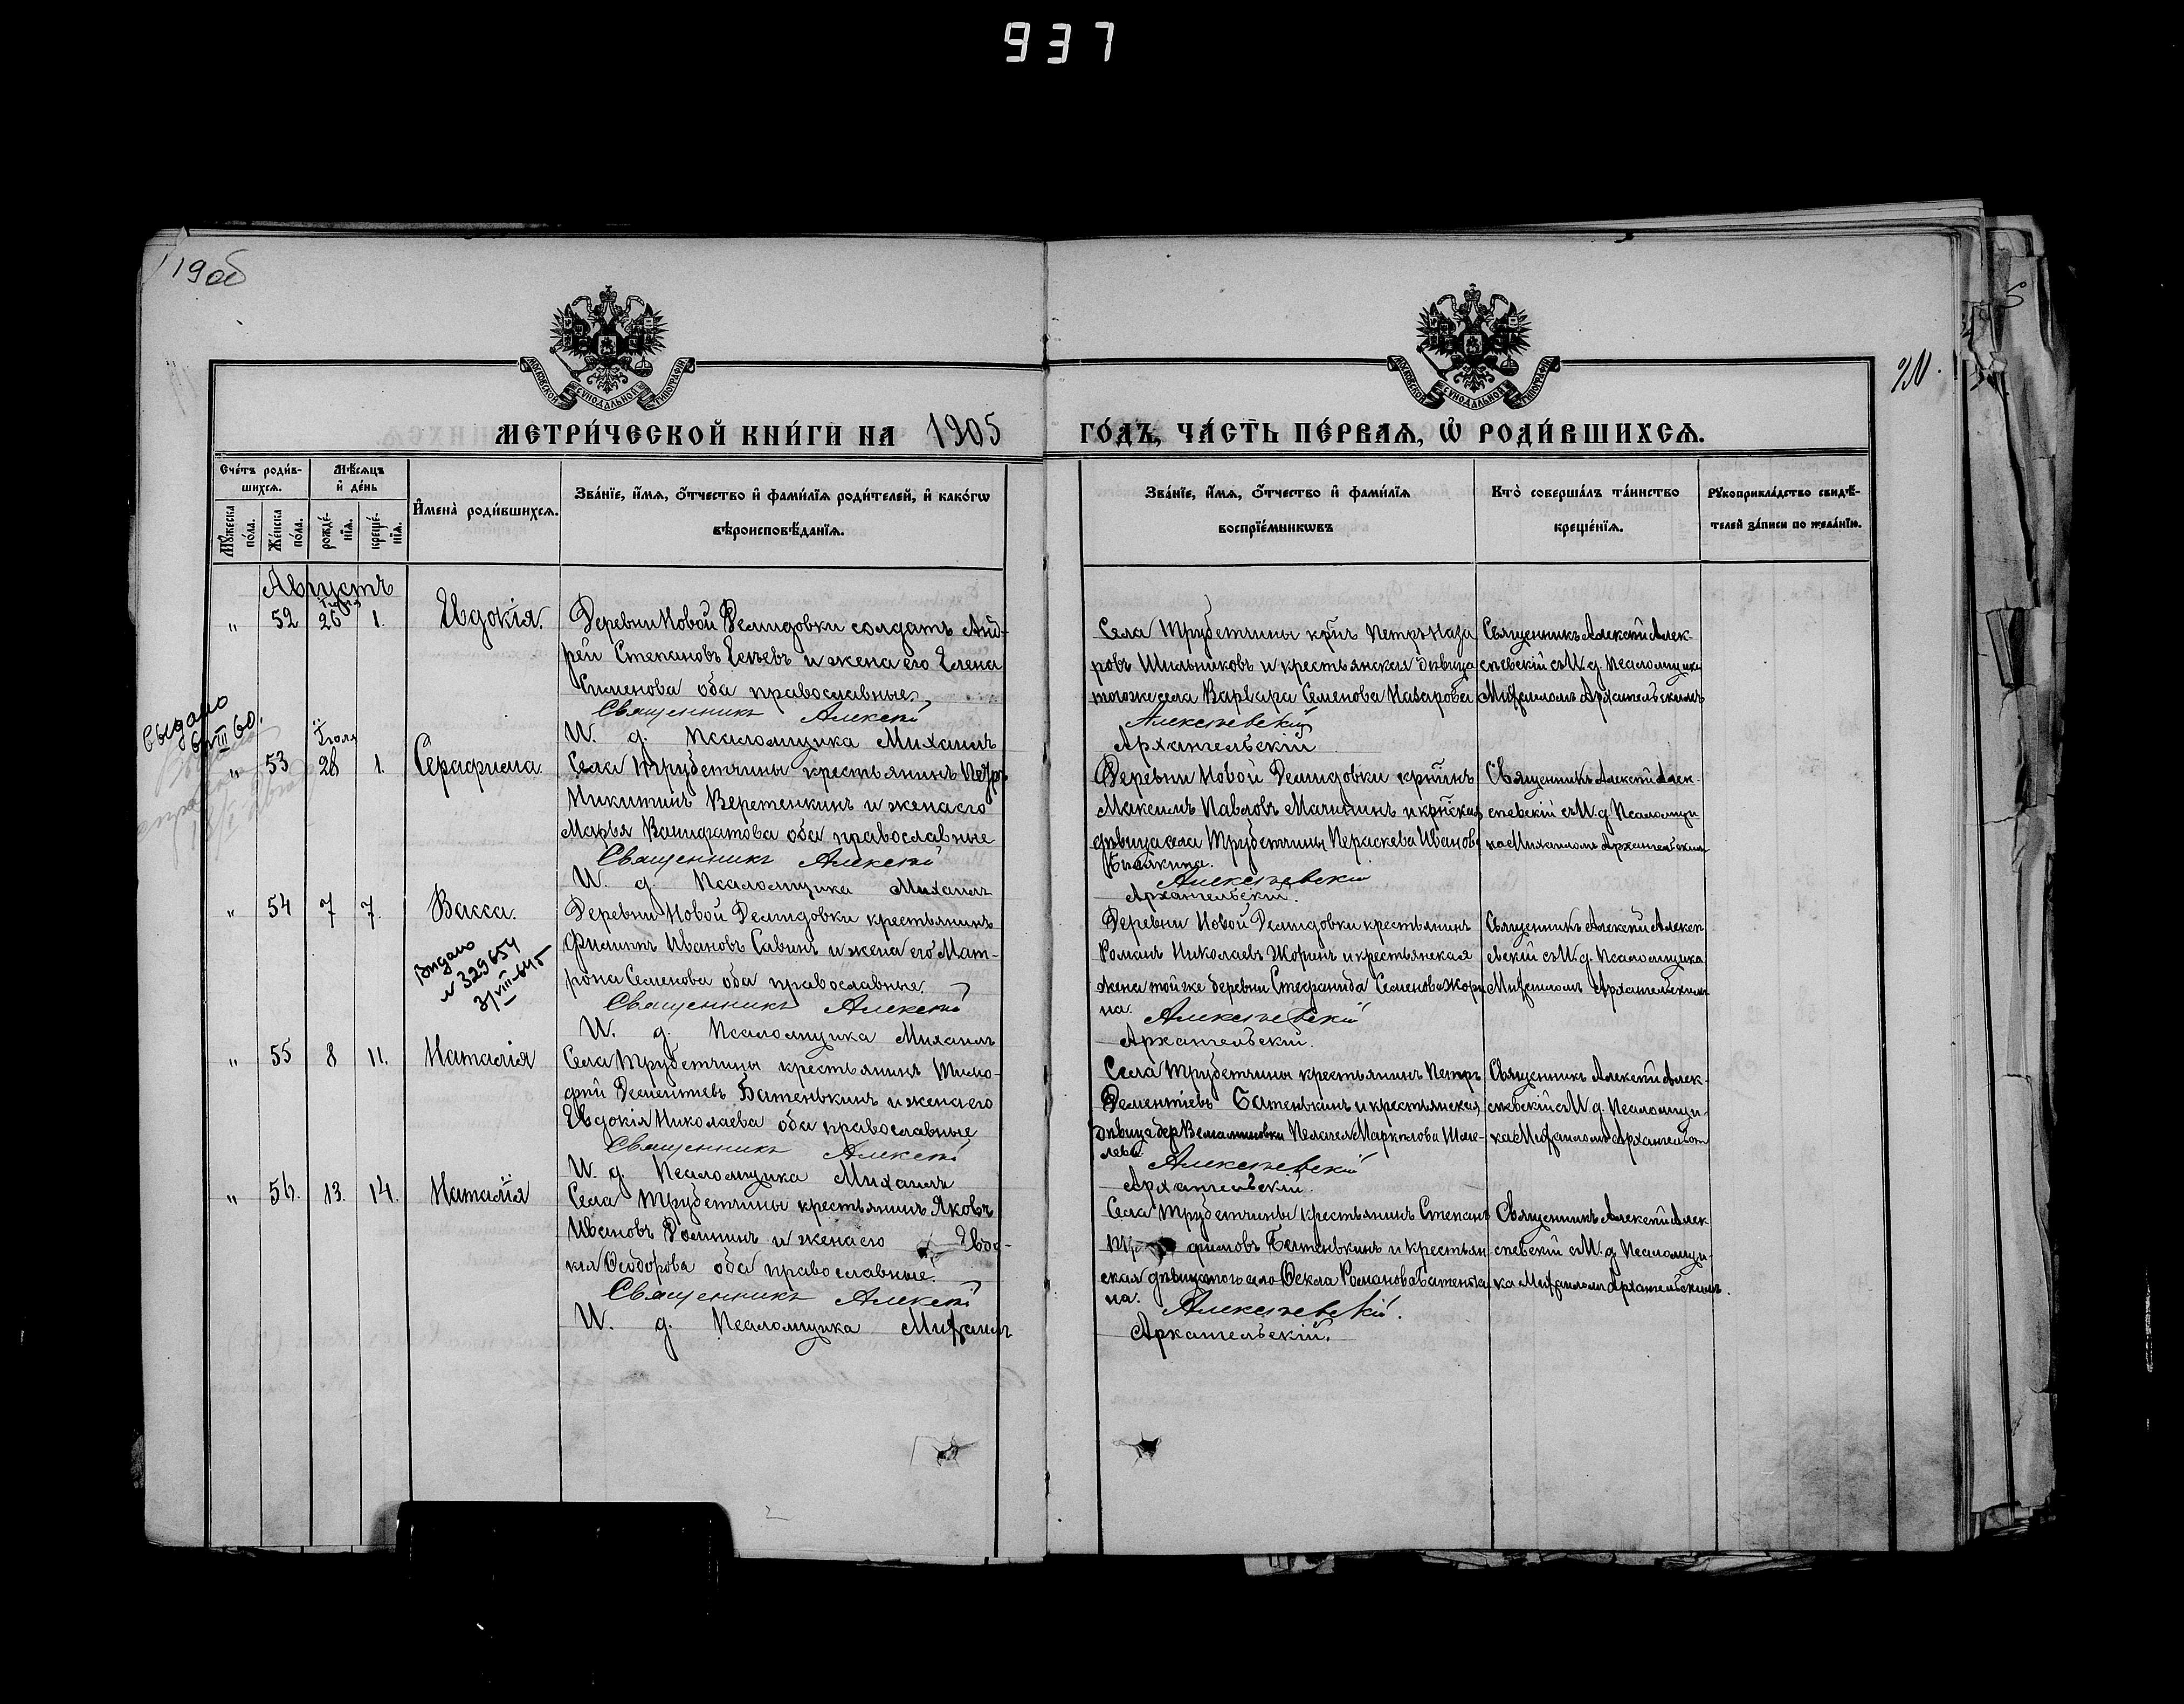 937
19об
20.
МЕТРИ́ЧЕСКОЙ КНИ́ГИ НА 1905 ГО́ДЪ, ЧА́СТЬ ПЕ́РВАЯ, Ѡ РОДИ́ВШИХСЯ.
МОСКОВСКОЙ СѴНОДАЛЬНОЙ ТИПОГРАФІИ
МОСКОВСКОЙ СѴНОДАЛЬНОЙ ТИПОГРАФІИ
Сче́тъ роди́вшихся.
Мꙋ́жеска по́ла.
Же́нска по́ла.
Мѣ́сяцъ и де́нь
рожде́нїя.
креще́нїя.
И҆мена̀ роди́вшихся.
Зва́нїе, и҆́мя, ѻ҆́тчество и҆ фами́лїя роди́телей, и҆ како́гѡ
вѣроисповѣ́данїя.
Зва́нїе, и҆́мя, ѻ҆́тчество и҆ фами́лїя
воспрїе́мникѡвъ
Кто̀ соверша́лъ та́инство
креще́нїя.
Рꙋкоприкла́дство свидѣ́-
телей за́писи по жела́нїю.
Августъ
" 52 Іюля 26 1. Евдокія.
Деревни Новой Демидовки солдатъ Анд-
рей Степановъ и жена его Елена
Симеонова оба православные.
Священникъ Алексѣй
И. д. Псаломщика Михаилъ
Села Трубетчины кр̃нъ Петръ Наза
ровъ Шильниковъ и крестьянская дѣвица
тогоже села Варвара Семенова Назарова
Алексѣевскій
Архангельскій
Священникъ Алексѣй Алек-
сѣевскій съ И. д. Псаломщика
Михаиломъ Архангельскимъ
Выдано
6/VIII 60.
" 53 Іюля 28 1. Серафима
Села Трубетчины крестьянинъ Петръ
Никитинъ Веретенкинъ и жена его
Марья Ванифатова оба православные
Священникъ Алексѣй
И. д. Псаломщика Михаилъ
Деревни Новой Демидовки кр̃нинъ
Максимъ Павловъ и кр̃нская
дѣвица села Трубетчины Параскева Иванова
Алексѣевскій
Архангельскій.
Священникъ Алексѣй Алек-
сѣевскій съ И. д. Псаломщи
ка Михаиломъ Архангельскимъ
" 54 7 7. Васса.
Выдано
N 329654
31/VIII-645
Деревни Новой Демидовки крестьянинъ
Филиппъ Ивановъ Савинъ и жена его Мат-
рона Семенова оба православные.
Священникъ Алексѣй
И. д. Псаломщика Михаилъ
Деревни Новой Демидовки крестьянинъ
Романъ Николаевъ Жоринъ и крестьянская
жена той же деревни Стефанида Семенова Жори
на.
Алексѣевскій
Архангельскій.
Священникъ Алексѣй Алексѣ
евскій съ И. д. Псаломщика
Михаиломъ Архангельскимъ
" 55 8 11. Наталія
Села Трубетчины крестьянинъ Тимо-
фей Дементіевъ Батенькинъ и жена его
Евдокія Николаева оба православные
Священникъ Алексѣй
И. д. Псаломщика Михаилъ
Села Трубетчины крестьянинъ Петръ
Дементіевъ Батенькинъ и крестьянская
дѣвица дер Пелагея Маркелова Шме-
лева
Алексѣевскій
Архангельскій.
Священникъ Алексѣй Алек-
сѣевскій съ И. д. Псаломщи-
ка Михаиломъ Архангельск
" 56. 13. 14. Наталія
Села Трубетчины крестьянинъ Яковъ
Ивановъ и жена его Евдо-
кія Ѳеодорова оба православные.
Священникъ Алексѣй
И. д. Псаломщика Михаилъ
Села Трубетчины крестьянинъ Степанъ
фимовъ Батенькинъ и крестьян
ская дѣвица того село Ѳекла Романова Батеньки
на.
Алексѣевскій.
Архангельскій.
Священникъ Алексѣй Алек
сѣевскій съ И. д. Псаломщи-
ка Михаиломъ Архангельскимъ.